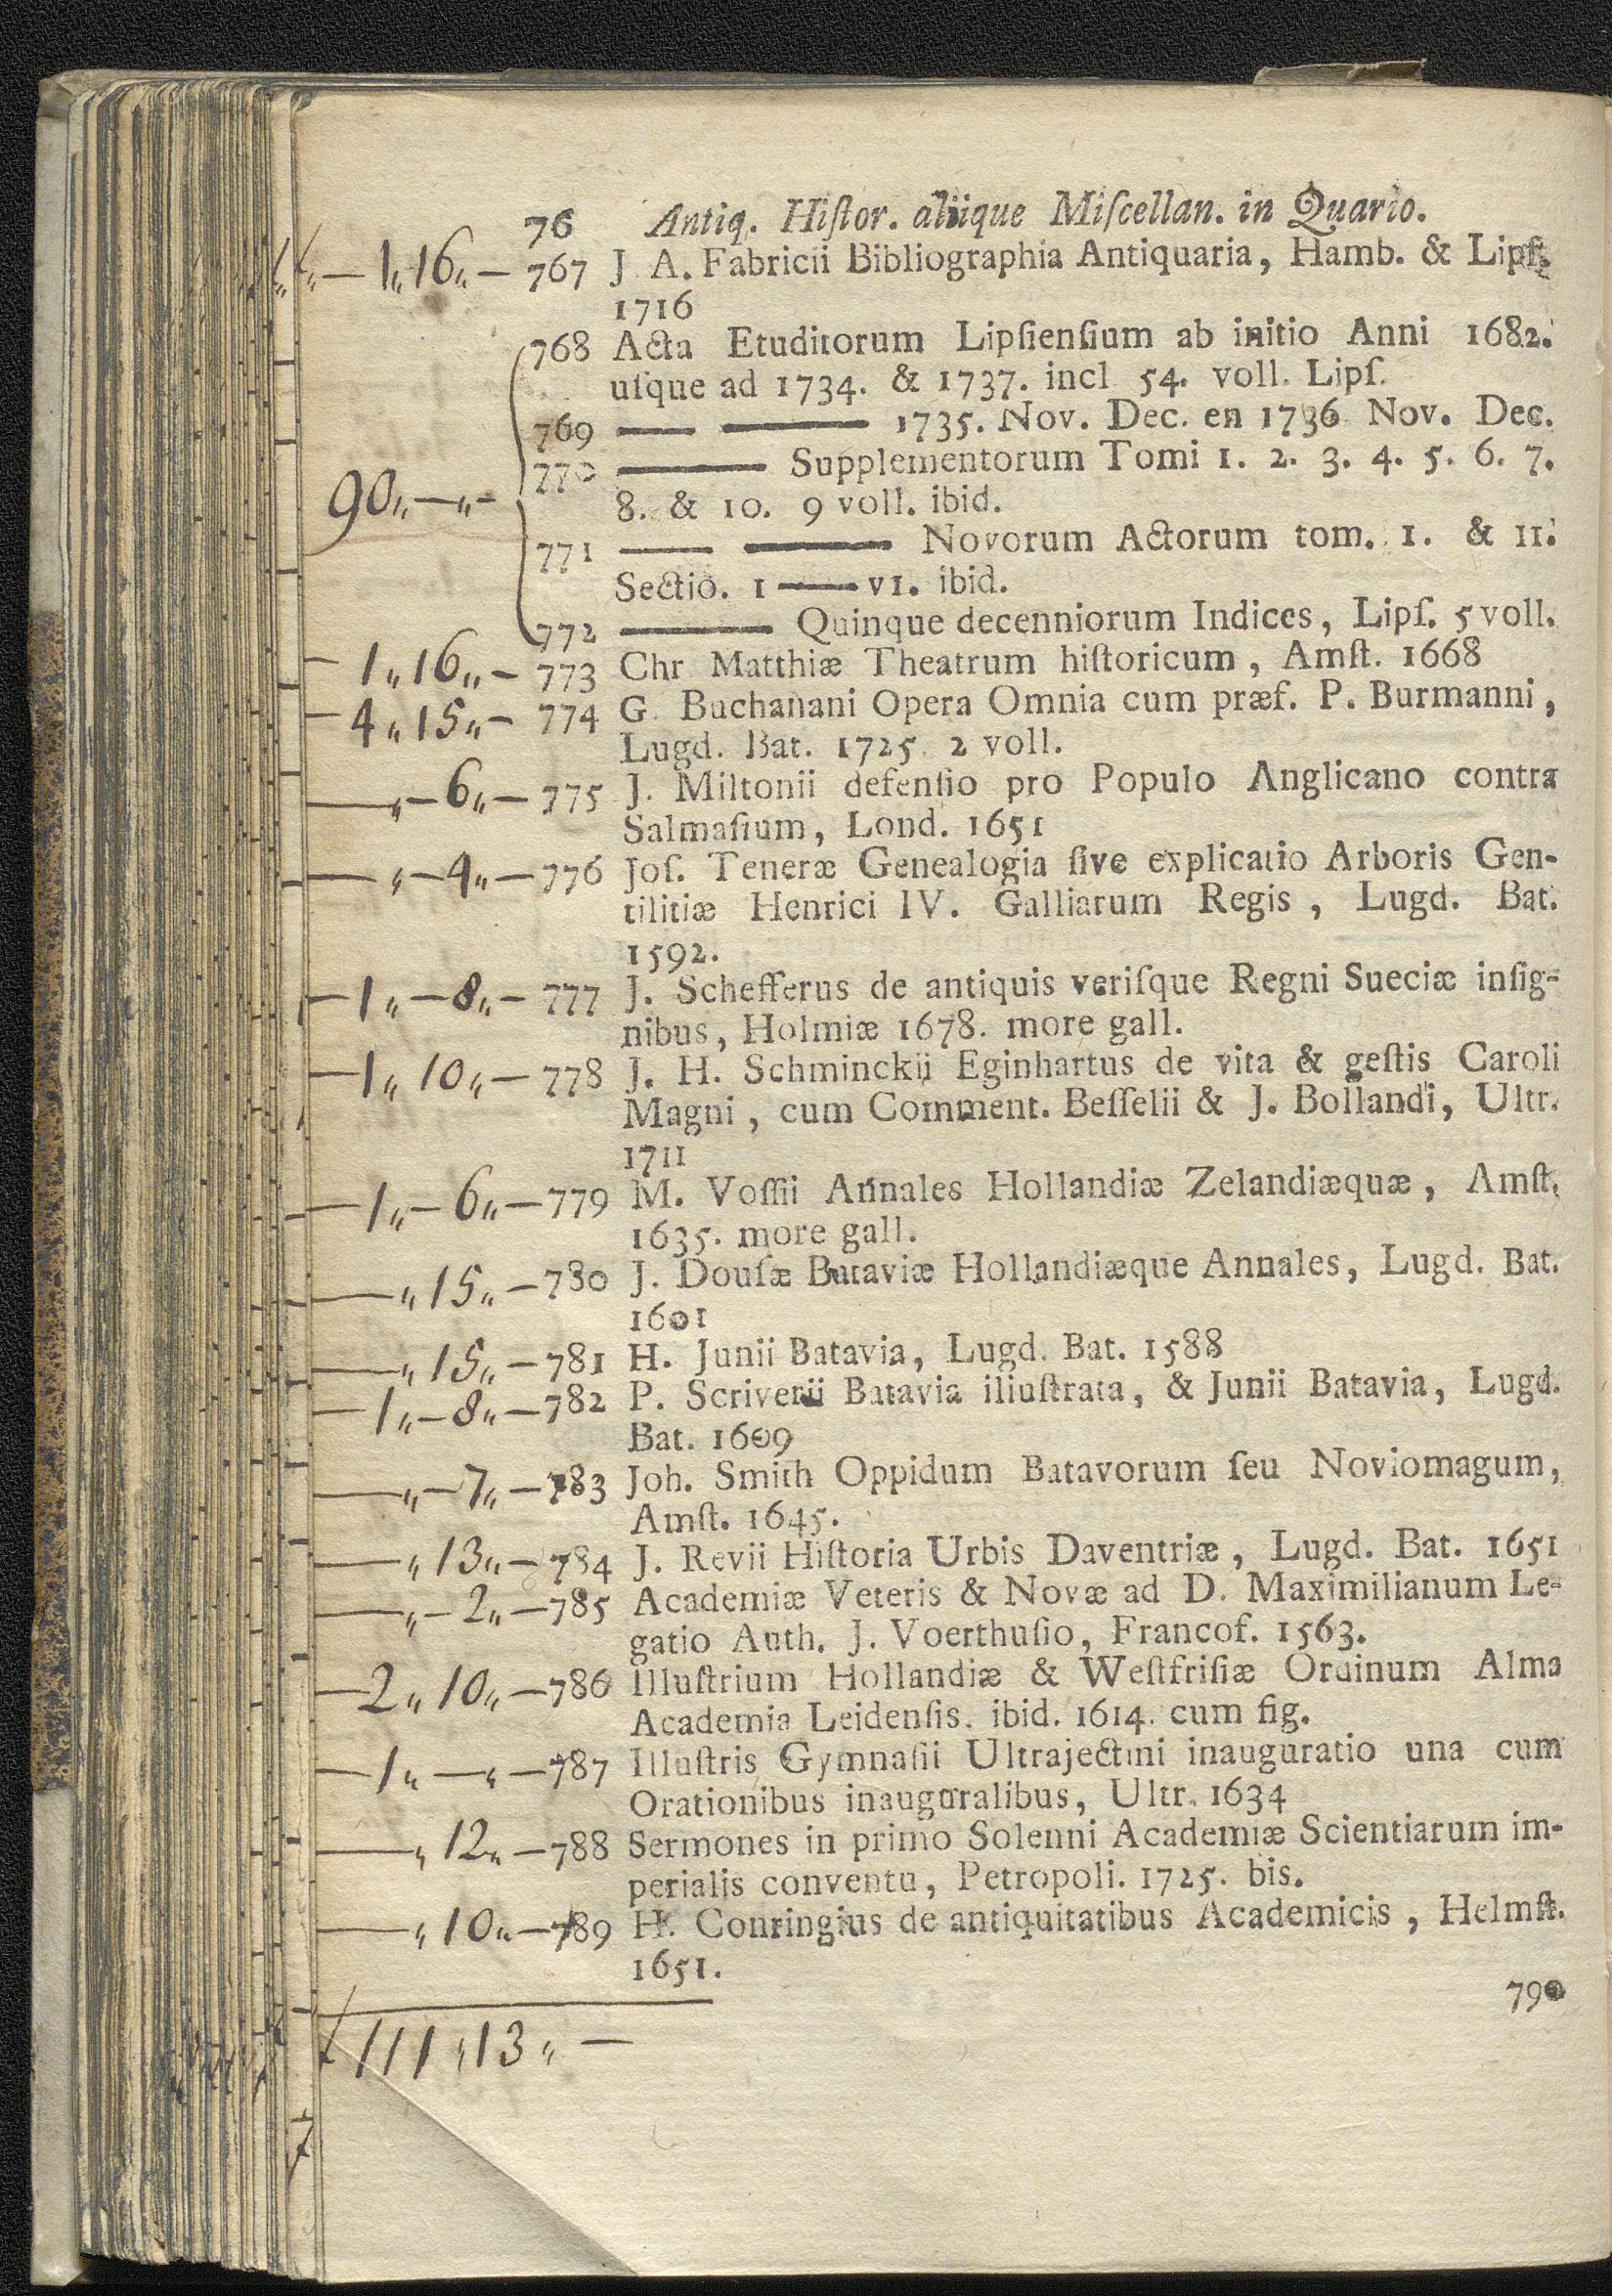 76 Antiq. Hiſtor. aliique Miſcellan. in Quario.
1„16„– 767 J A. Fabricii Bibliographia Antiquaria, Hamb. & Lipſ.
1716
768 Acta Etuditorum Lipſienſium ab initio Anni 1682.
uſque ad 1734. & 1737. incl 54. voll. Lipſ.
769 —— ——— 1735. Nov. Dec. en 1736 Nov. Dec.
770 ——— Supplementorum Tomi 1. 2. 3. 4. 5. 6. 7.
90„–„– 8. & 10. 9 voll. ibid.
771 —— ——— Novorum Actorum tom. I. & II.
Sectio. I —— VI. ibid.
772 ——— Quinque decenniorum Indices, Lipſ. 5 voll.
– 1„16„– 773 Chr Matthiæ Theatrum hiſtoricum, Amſt. 1668
– 4„15„– 774 G. Buchanani Opera Omnia cum præf. P. Burmanni,
Lugd. Bat. 1725. 2 voll.
—„–6„– 775 J. Miltonii defenſio pro Populo Anglicano contra
Salmaſium, Lond. 1651
—„–4„– 776 Joſ. Teneræ Genealogia ſive explicatio Arboris Gen-
tilitiæ Henrici IV. Galliarum Regis, Lugd. Bat.
1592.
–1„–8„– 777 J. Schefferus de antiquis veriſque Regni Sueciæ inſig-
nibus, Holmiæ 1678. more gall.
–1„10„– 778 J. H. Schminckii Eginhartus de vita & geſtis Caroli
Magni, cum Comment. Beſſelii & J. Bollandi, Ultr.
1711
–1„–6„– 779 M. Voſſii Annales Hollandiæ Zelandiæquæ, Amſt.
1635. more gall.
—„15„– 780 J. Douſæ Bataviæ Hollandiæque Annales, Lugd. Bat.
1601
—„15„– 781 H. Junii Batavia, Lugd. Bat. 1588
–1„–8„– 782 P. Scriverii Batavia iliuſtrata, & Junii Batavia, Lugd.
Bat. 1609
—„–7„– 783 Joh. Smith Oppidum Batavorum ſeu Noviomagum,
Amſt. 1645.
—„13„– 784 J. Revii Hiſtoria Urbis Daventriæ, Lugd. Bat. 1651
—„–2„– 785 Academiæ Veteris & Novæ ad D. Maximilianum Le-
gatio Auth. J. Voerthuſio, Francof. 1563.
–2„10„– 786 Illuſtrium Hollandiæ & Weſtfriſiæ Ordinum Alma
Academia Leidenſis. ibid. 1614. cum fig.
–1„–„– 787 Illuſtris Gymnaſii Ultrajectini inauguratio una cum
Orationibus inauguralibus, Ultr. 1634
—„12„– 788 Sermones in primo Solenni Academiæ Scientiarum im-
perialis conventu, Petropoli. 1725. bis.
—„10„– 789 H. Conringius de antiquitatibus Academicis, Helmſt.
1651.
790
111„13„–